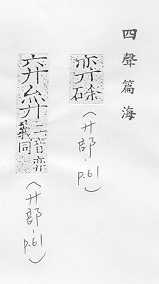 四聲篇海
弈 (廾部 p.61)
二音弈義同 (廾部 p.61)